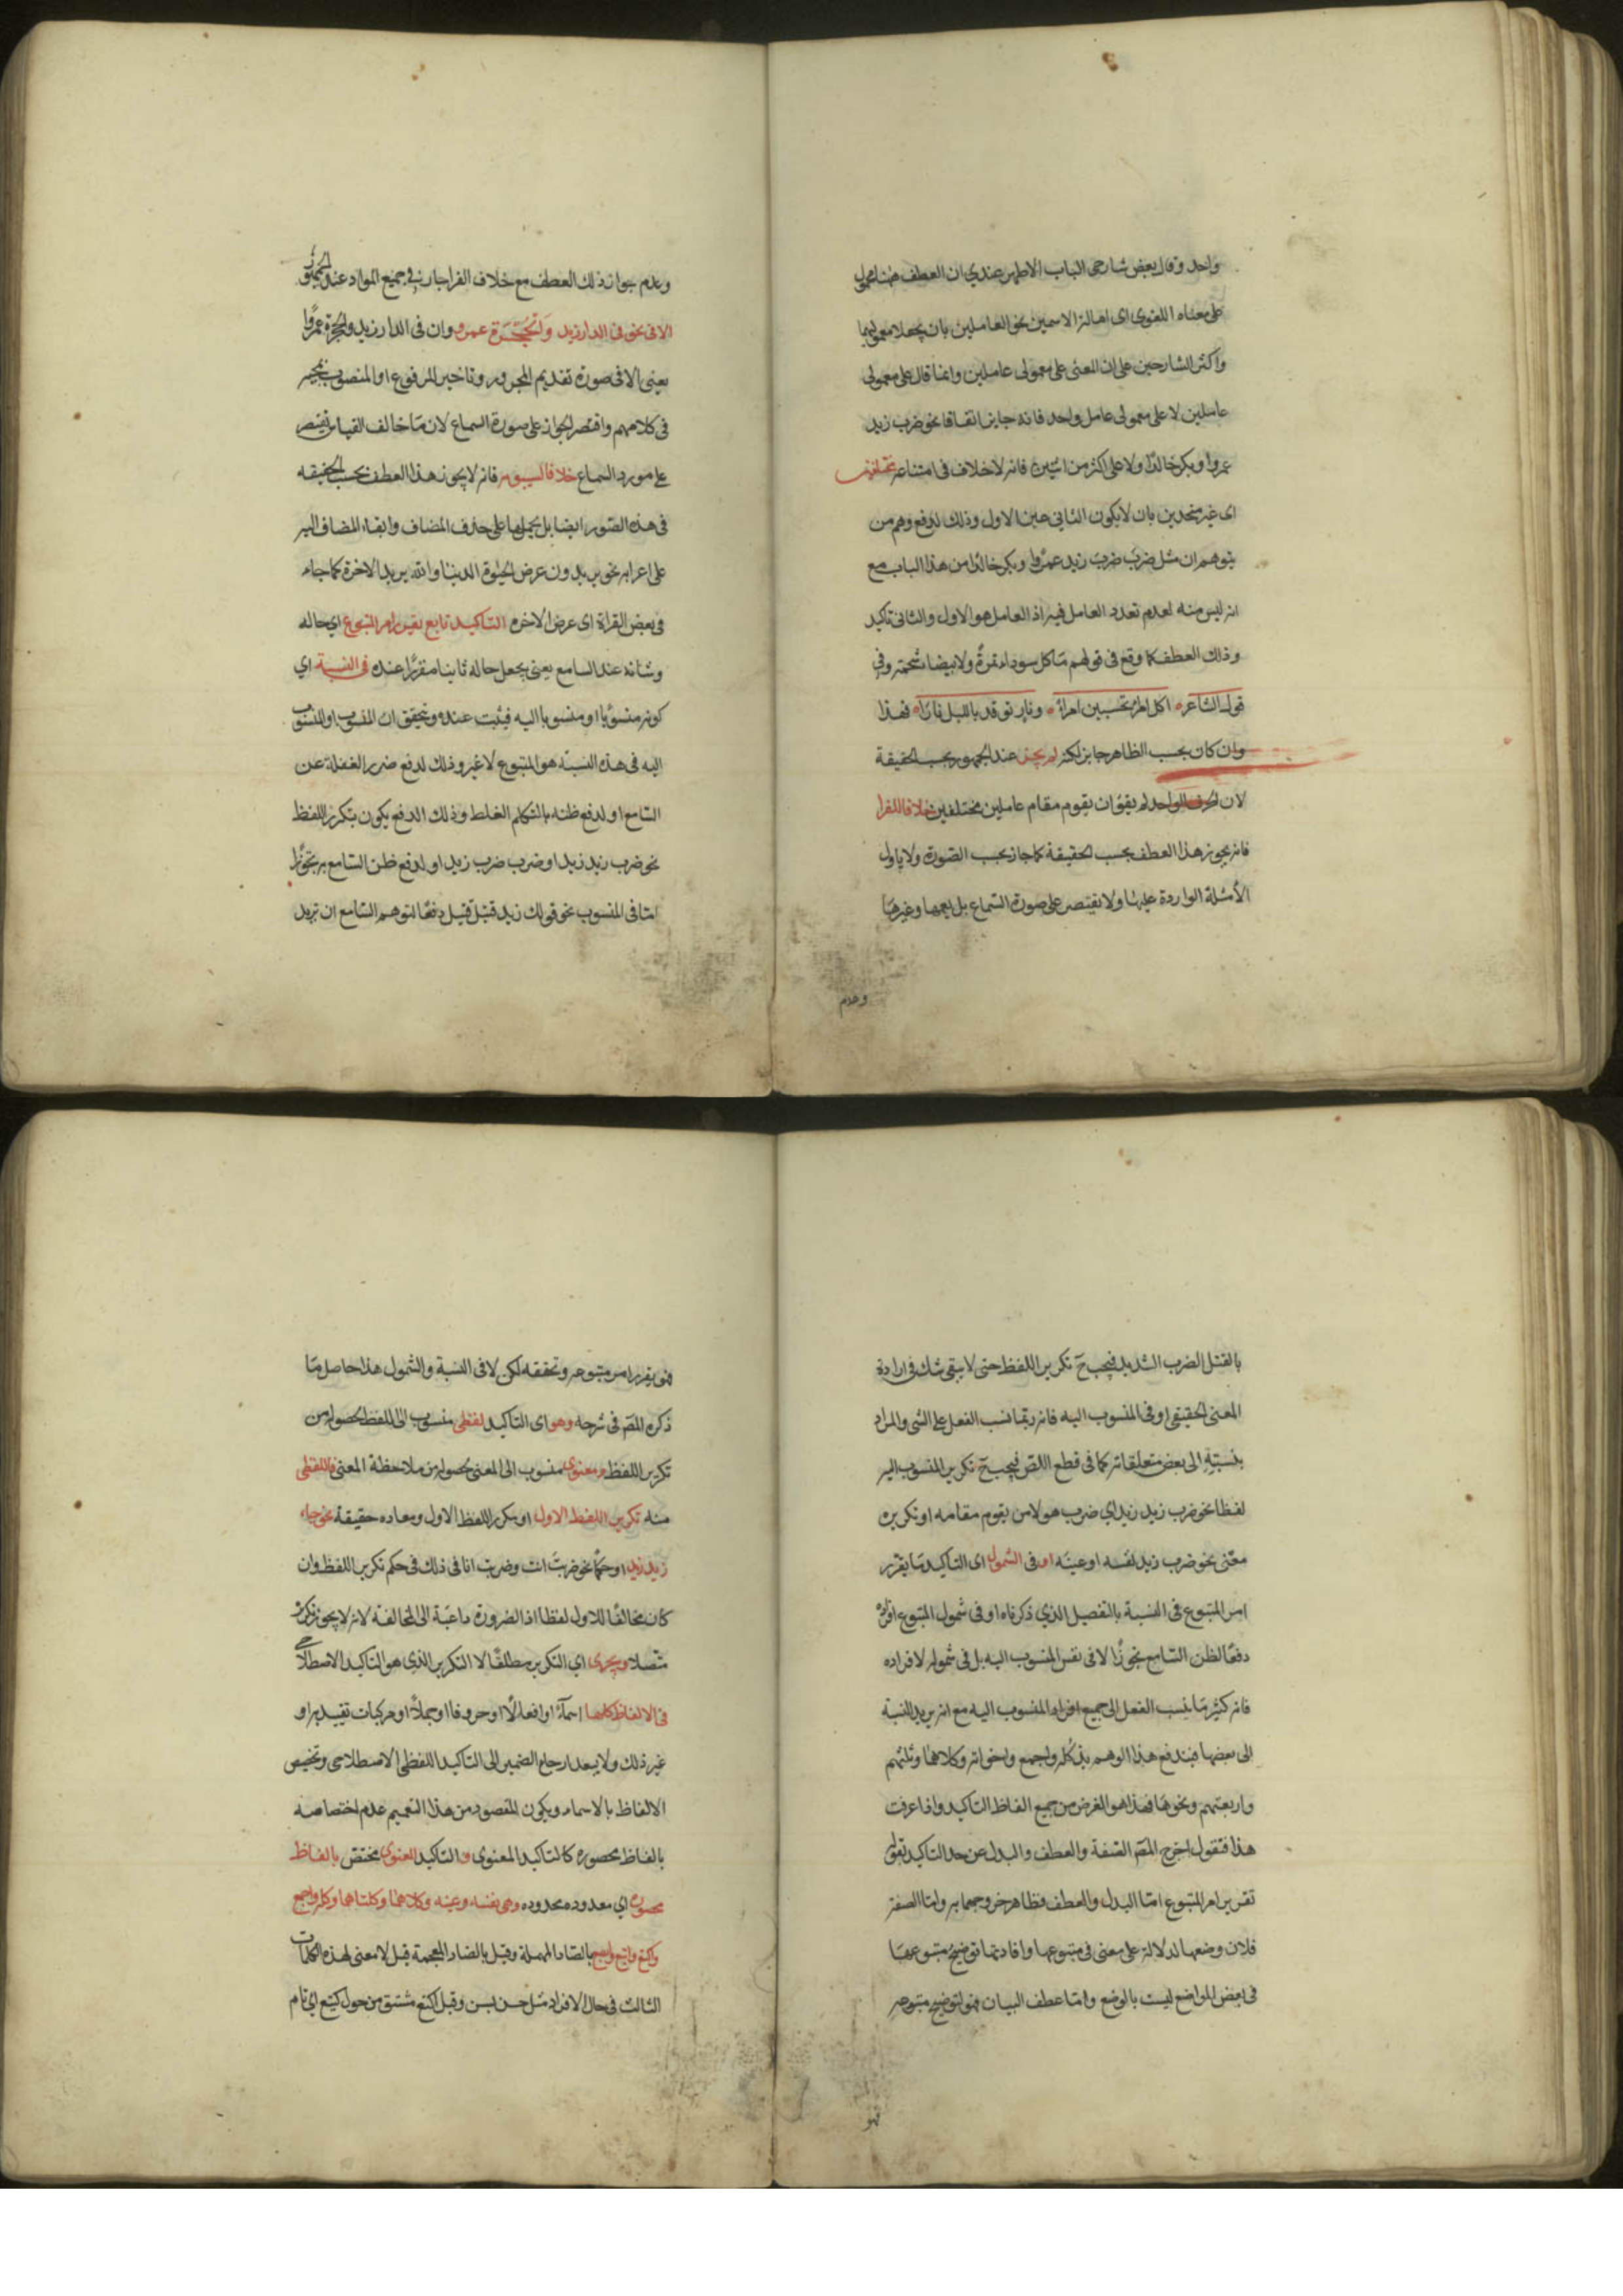 واحد وقال بعض شارحى اللباب الاظهر عندي ان العطف ههنا محمول
على معناه اللغوى اى امالة الاسمين نحو العاملين بان يجعلا معموليهما
واكثر الشارحين على ان المعنى على معمولى عاملين وانما قال على معمولى
عاملين لا على معمولى عامل واحد فانه جايز اتفاقا نحو ضرب زيد
عمروا وبكر خالدًا ولا على اكثر من اثنين فانه لا خلاف فى امتناعه مختلفين
اى غير متحدين بان لا يكون الثانى عين الاول وذلك لدفع وهم من
يتوهم ان مثل ضربَ ضربَ زيد عمرًوا وبكر خالدًا من هذا الباب مع
انه ليس منه لعدم تعدد العامل فيه اذ العامل هو الاول والثانى تاكيد
وذلك العطف كما وقع فى قولهم مَا كل سوداء تمرةً ولا بيضاء شحمة وفى
قول الشاعر اكل امرءٍ تحسبين امراءً ونارٍ توقد بالليل نارًا فهذا
وان كان بحسب الظاهر جايز لكنه لم يجز عند الجمهور بحسب الحقيقة
لان الحرف الواحد لم يقوَ ان يقوم مقام عاملين مختلفين خلافا للفرا
فانه يجوز هذا العطف بحسب الحقيقة كما جاز بحسب الصّورة ولا ياول
الأمثلة الواردة عليها ولا يقتصر على صورة السّماع بل يعمها وغيرهَا
وعدم
وعدم جواز ذلك العطف مع خلاف الفرا جار فى جميع المواد عند الجمهور
الا فى نحو فى الدار زيد وَالْحُجْرَة عمرو وان فى الدار زيدًا والحجرة عمرًوا
يعنى الا فى صورة تقديم المجرور وتاخير المرفوع او المنصوب لمجيئه
فى كلامهم واقتصر الجواز على صورة السماع لان مَا خالف القياس يقتصر
على مورد السماع خلافا لسيبويه فانه لا يجوز هذا العطف بحسب الحقيقه
فى هذه الصّور ايضا بل يحملها على حذف المضاف وابقاء المضاف اليه
على اعرابه نحو يريدون عرض الحيوة الدنيا والله يريد الاخرة كما جاء
فى بعض القراة اى عرض الاخره التاكيد تابع يقرر امر المتبوع اي حاله
وشانه عند السامع يعنى يجعل حاله ثابتا مقرّرًا عنده فى النسبة اي
كونه منسوبًا او منسوبا اليه فيثبت عنده ويتحقق ان المنسوب او المنسوب
اليه فى هذه النسبة هو المتبوع لا غير وذلك لدفع ضرر الغفلة عن
السّامع او لدفع ظنه بالمتكلم الغلط وذلك الدفع يكون بتكرير اللفظ
نحو ضرب زيد زيد او ضرب ضرب زيد او لدفع ظن السّامع به تجوّزًا
امّا فى المنسوب نحو قولك زيد قتيل قتيل دفعًا لتوهم السّامع ان تريد
بالقتل الضرب الشديد فيجب ح تكرير اللفظ حتى لا يبقى شك فى ارادة
المعنى الحقيقى او فى المنسوب اليه فانه ربّما نسب الفعل على الشى والمراد
بنسبتهِ الى بعض متعلقاته كما فى قطع اللص فيجب ح تكرير المنسوب اليه
لفظا نحو ضرب زيد زيد اي ضرب هو لا من يقوم مقامه او تكريره
معنًى نحو ضرب زيد نفسه او عينه او فى الشمول اى التاكيد مَا يقرر
امر المتبوع فى النسبة بالتفصيل الذي ذكرناه او فى شمول المتبوع افراده
دفعًا لظن السّامع تجوزًا لا فى نفس المنسوب اليه بل فى شموله لافراده
فانه كثيرمَا ينسب الفعل الى جميع افراد المنسوب اليه مع انه يريد النسبة
الى بعضها فيندفع هذا الوهم بذكر كله واجمع واخواته وكلاهمَا وثلثتهم
واربعتهم ونحوهَا فهذا هو الغرض من جميع الفاظ التاكيد واذا عرفت
هذا فنقول اخرج المصَ الصّفة والعطف والبدل عن حد التاكيد بقوله
تقرير امر المتبوع امّا البدل والعطف فظاهر خروجهما به وامّا الصفة
فلان وضعها لدلالة على معنى فى متبوعها وافادتها توضيح متبوعهَا
فى بعض المواضع ليست بالوضع وامّا عطف البيان فهو لتوضيح متبوعه
فهو
فهو يقرر امر متبوعه وتحققه لكن لا فى النسبة والشمول هذا حاصل مَا
ذكره المصَ فى شرحه وهو اى التاكيد لفظى منسوب الى اللفظ لحصوله من
تكرير اللفظ ومعنوى منسوب الى المعنى لحصوله من ملاحظة المعنى فاللفظى
منه تكرير اللفظ الاول او مكرر اللفظ الاول ومعاده حقيقة نحو جاء
زيد زيد او حكمًا نحو ضربتَ انت وضربت انا فى ذلك فى حكم تكرير اللفظ وان
كان مخالفًا للاول لفظا اذ الضرورة داعيَة الى المخالفة لانه لا يجوز تكريره
متّصلا ويجرى اي التكرير مطلقًا لا التكرير الذى هو التاكيد الاصطلاحى
فى الالفاظ كلها اسمآءً او افعالًا او حروفا او جملًا او مركبات تقييدية او
غير ذلك ولا يبعد ارجاع الضمير الى التاكيد اللفظى الاصطلاحى وتخصيص
الالفاظ بالاسماء ويكون المقصود من هذا التعميم عدم اختصاصه
بالفاظ محصوره كالتاكيد المعنوى والتاكيد المعنوى مختصّ بالفاظ
محصوره اي معدوده محدوده وهى نفسه وعينه وكلاهمَا وكلتاهما وكله واجمع
واكتع وابتع وابصع بالصّاد المهملة وقيل بالضاد المعجمة قيل لا معنى لهذه الكلمات
الثالث فى حال الافراد مثل حسن بسن وقيل اكتع مشتق من حول كتيع اي تام